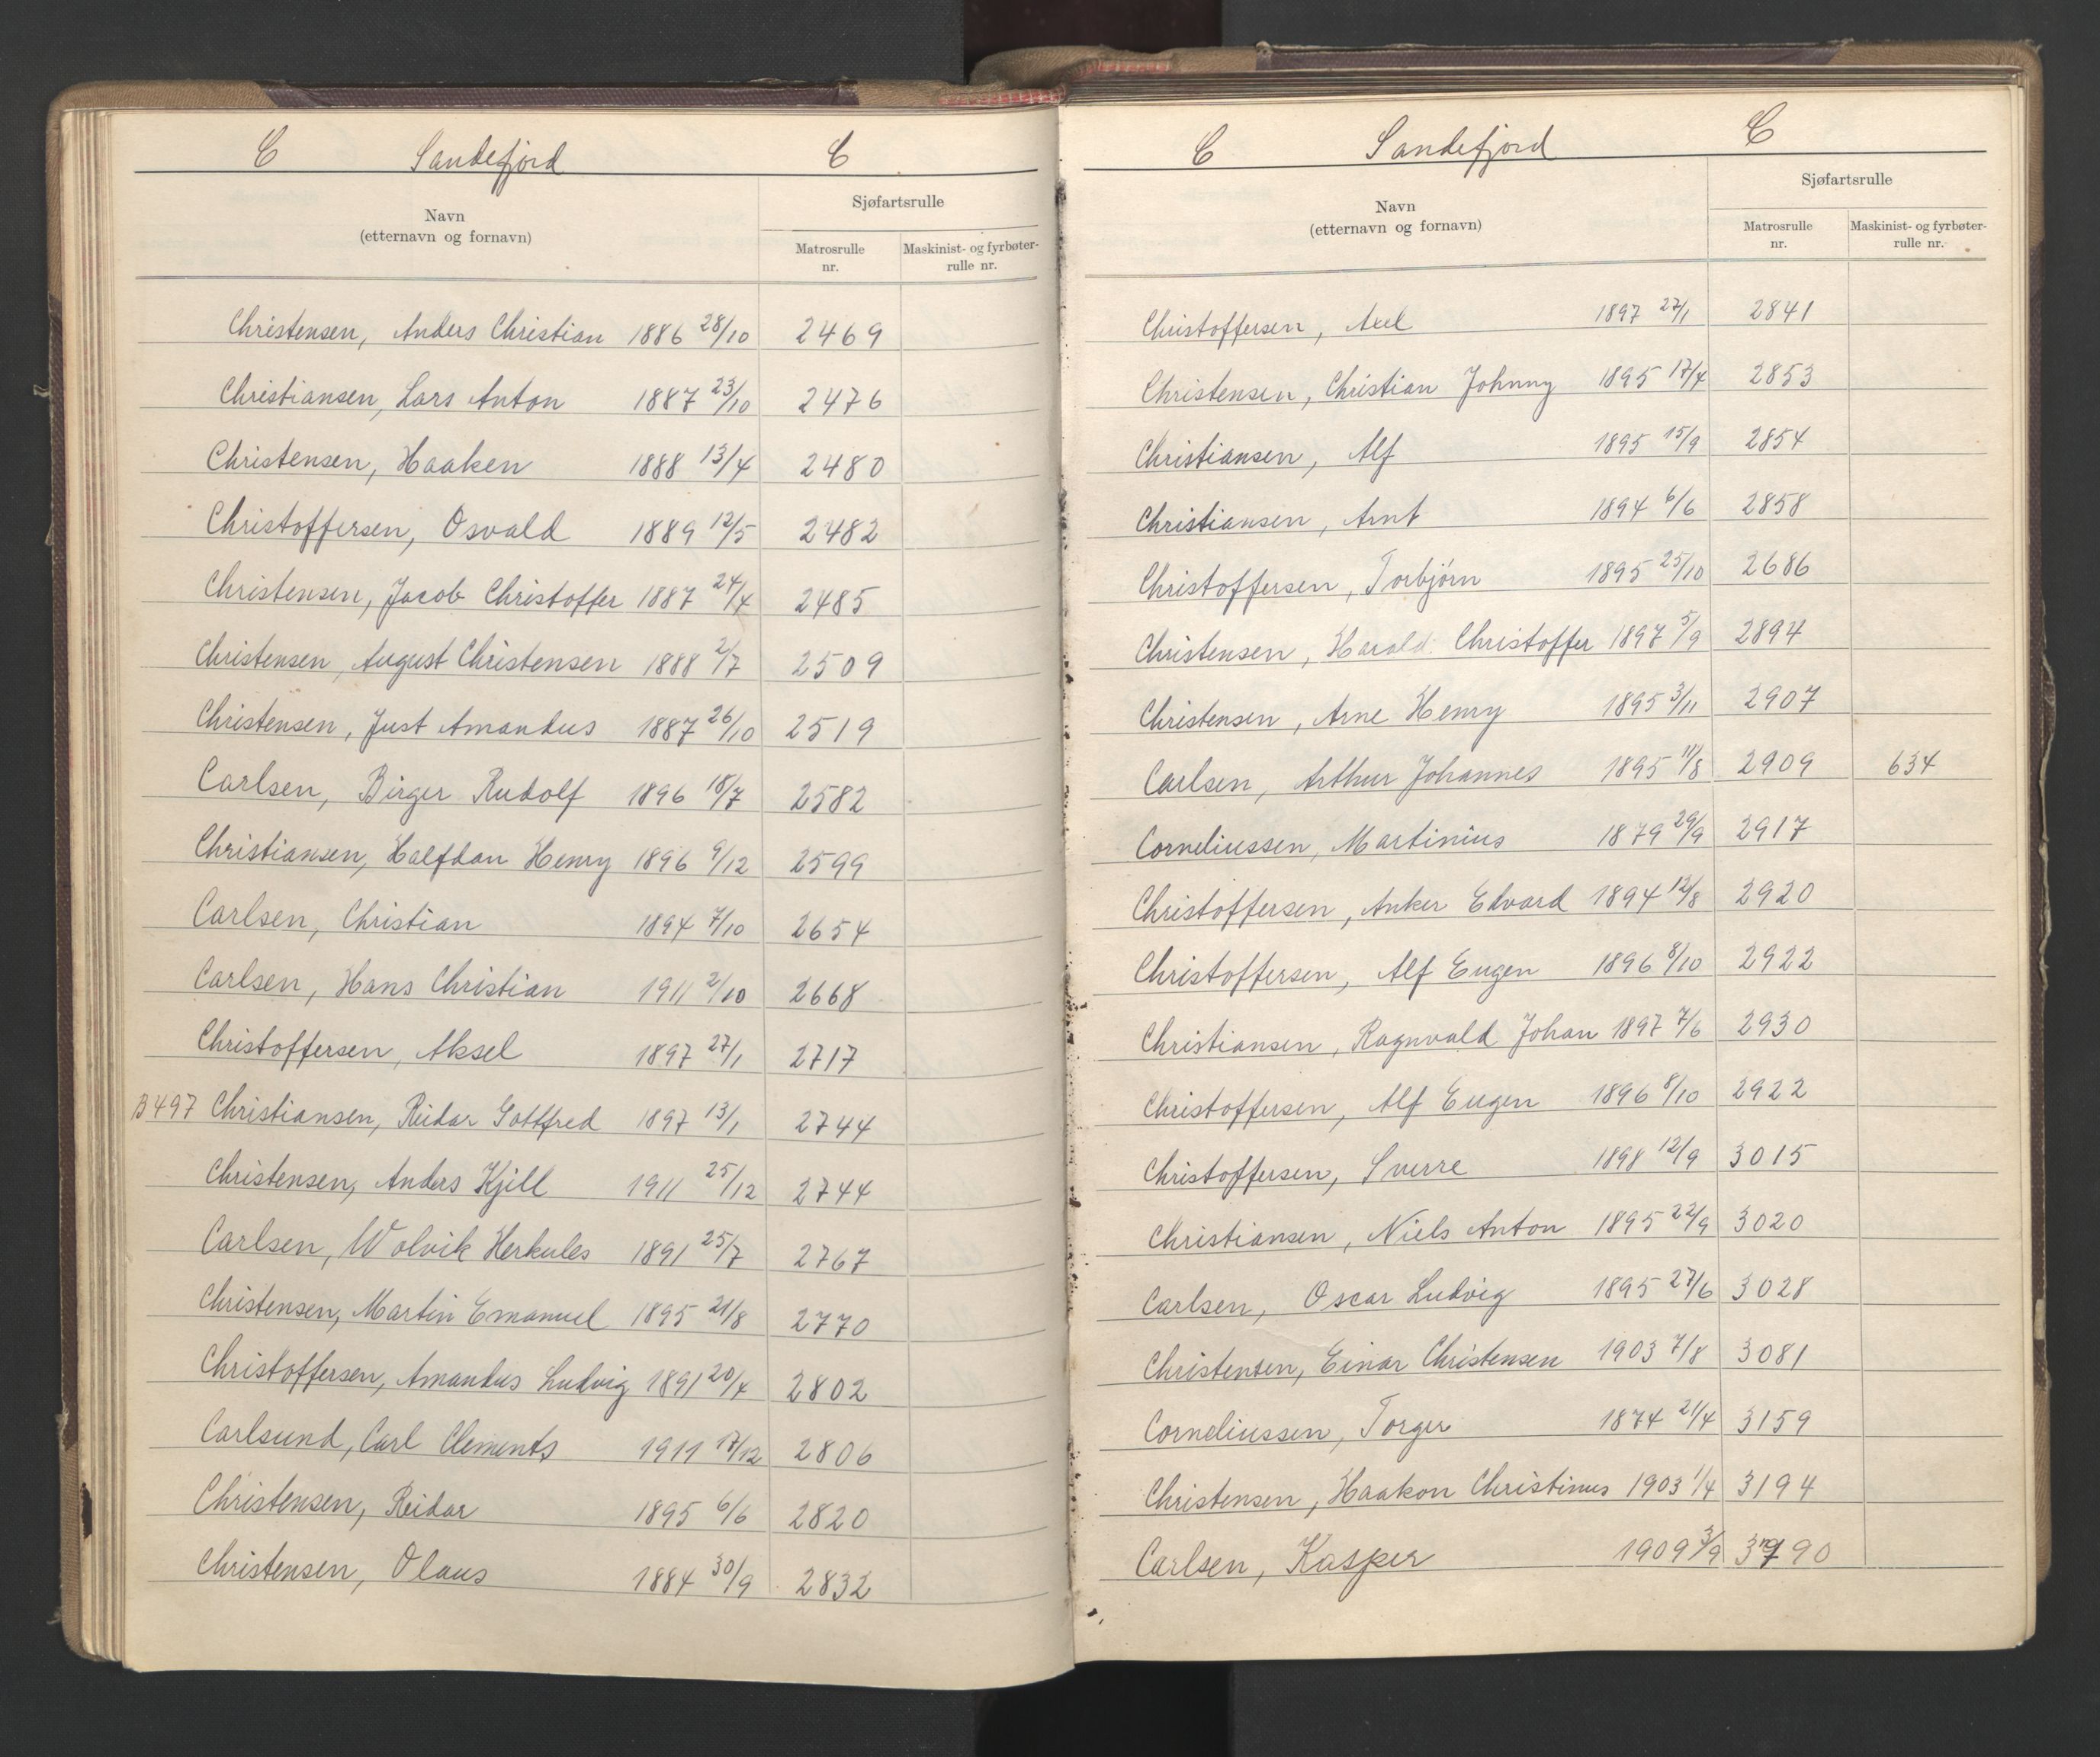 C Sandefjord C
Navn
(etternavn og fornavn)
Sjøfartsrulle
Matrosrulle
nr.
Maskinist- og fyrbøter-
rulle nr.
Christensen, Anders Christian 1886 28/10 2469
Christiansen, Lars Anton 1887 23/10 2476
Christensen, Haaken 1888 13/4 2480
Christoffersen, Osvald 1889 12/5 2482
Christensen, Jacob Christoffer 1887 24/4 2485
Christensen, August Christensen 1888 2/7 2509
Christensen, Just Amandus 1887 26/10 2519
Carlsen, Birger Rudolf 1896 18/7 2582
Christiansen, Halfdan Henry 1896 9/12 2599
Carlsen, Christian 1894 7/10 2654
Carlsen, Hans Christian 1911 2/10 2668
Christoffersen, Aksel 1897 27/1 2717
B497 Christiansen, Reidar Gottfred 1897 13/1 2744
Christensen, Anders Kjell 1911 25/12 2744
Carlsen, Wolvik Herkules 1891 25/7 2767
Christensen, Martin Emanuel 1895 21/8 2770
Christoffersen, Amandus Ludvig 1891 20/4 2802
Carlsund, Carl Clements 1911 17/12 2806
Christensen, Reidar 1895 6/6 2820
Christensen, Olaus 1884 30/9 2832
C Sandefjord C
Navn
(etternavn og fornavn)
Sjøfartsrulle
Matrosrulle
nr.
Maskinist- og fyrbøter-
rulle nr.
Christoffersen, Axel 1897 27/1 2841
Christensen, Christian Johnny 1895 17/4 2853
Christiansen, Alf 1895 15/9 2854
Christiansen, Arnt 1894 6/6 2858
Christoffersen, Torbjørn 1895 25/10 2686
Christensen, Harald Christoffer 1897 5/9 2894
Christensen, Arne Henry 1895 3/11 2907
Carlsen, Arthur Johannes 1895 11/8 2909 634
Corneliussen, Martinius 1879 29/9 2917
Christoffersen, Anker Edvard 1894 12/8 2920
Christoffersen, Alf Eugen 1896 8/10 2922
Christiansen, Ragnvald Johan 1897 7/6 2930
Christoffersen, Alf Eugen 1896 8/10 2922
Christoffersen, Sverre 1898 12/9 3015
Christiansen, Niels Anton 1895 22/9 3020
Carlsen, Oscar Ludvig 1895 27/6 3028
Christensen, Einar Christensen 1903 7/8 3081
Corneliussen, Torger 1874 21/4 3159
Christensen, Haakon Christinus 1903 1/4 3194
Carlsen, Kasper 1909 3/9